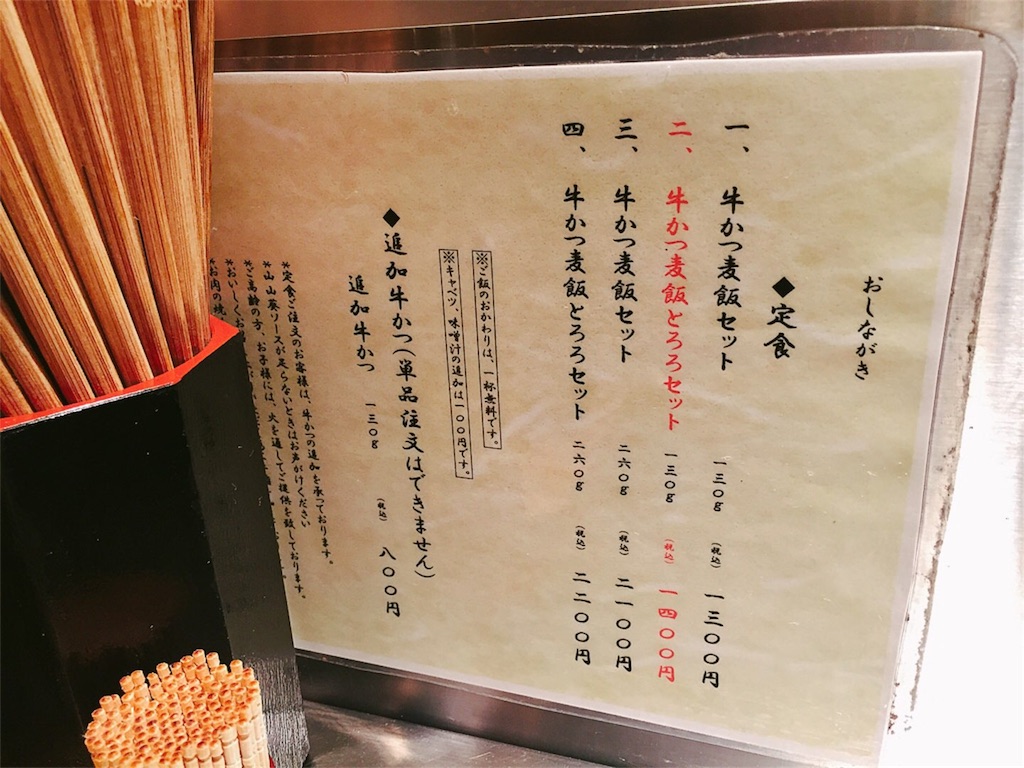 おしながき
◆定食
一、牛かつ麦飯セット 一三〇g (税込) 一三〇〇円
二、牛かつ麦飯とろろセット 一三〇g (税込) 一四〇〇円
三、牛かつ麦飯セット 二六〇g (税込) 二一〇〇円
四、牛かつ麦飯とろろセット 二六〇g (税込) 二二〇〇円
※ご飯のおかわりは、一杯無料です。
※キャベツ、味噌汁の追加は一〇〇円です。
◆追加牛かつ(単品注文はできません)
追加牛かつ 一三〇g (税込) 八〇〇円
*定食ご注文のお客様は、牛かつの追加を承っております。
*山山葵ソースが足らないときはお声がけください
*ご高齢の方、お子様には、火を通してご提供を致しております。
*おいしくお
*お肉の焼